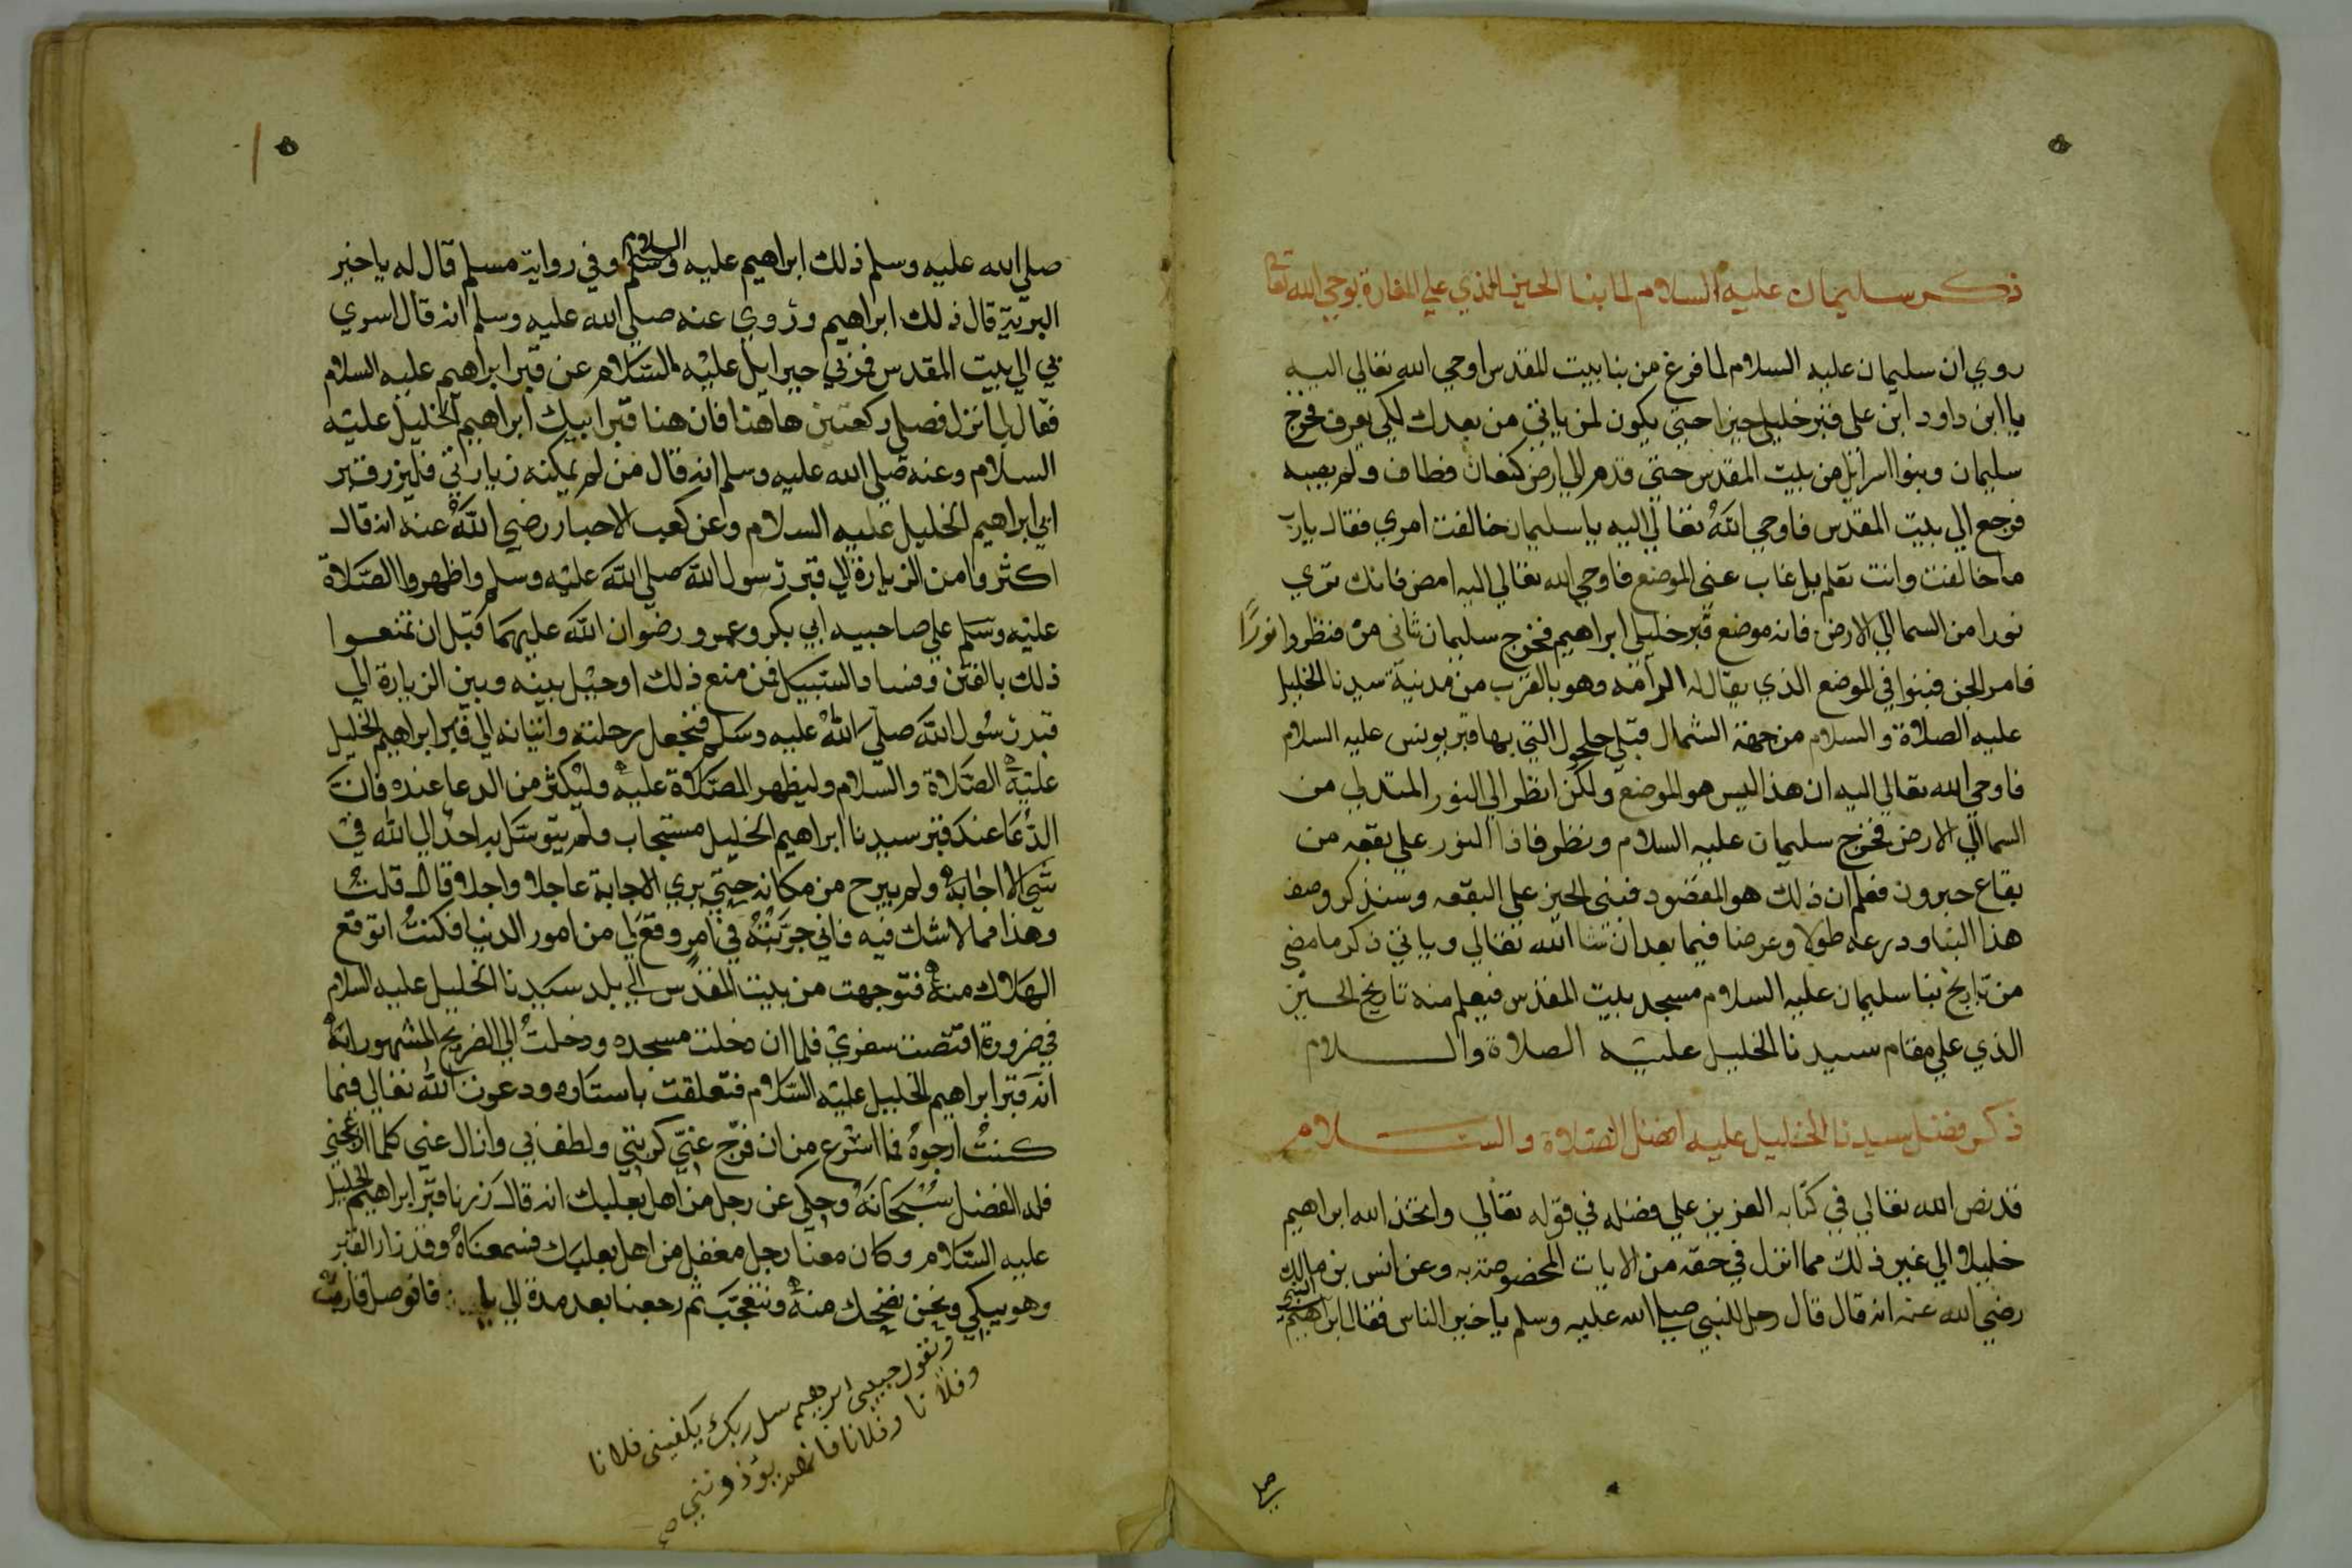 ذكر سليمان عليه السلام لما بنا الحيز الذي علي المغارة بوحي الله تعا
روي ان سليمان عليه السلام لما فرغ من بنا بيت المقدس اوحي الله تعالي اليه
يا ابن داود ابن على قبر خليلي حيزا حتي يكون لمن ياتي من بعدك لكي يعرف فخرج
سليمان وبنوا اسرايل من بيت المقدس حتي قدم الي ارض كنعان فطاف ولم يصبه
فرجع الي بيت المقدس فاوحي اللهُ تعالي اليه يا سليمان خالفت امري فقال يارب
ما خالفت وانت تعلم بل غاب عني الموضع فاوحي الله تعالي اليه امض فانك تري
نورا من السما الي الارض فانه موضع قبر خليلي ابراهيم فخرج سليمان ثاني مرة فنظروا نورًا
فامر الجن فبنوا في الموضع الذي يقال له الرامه وهو بالقرب من مدينة سيدنا الخليل
عليه الصلاة والسلام من جهة الشمال قبلي حلحول التي بها قبر يونس عليه السلام
فاوحي الله تعالي اليه ان هذا ليس هو الموضع ولكن انظر الي النور المتدلي من
السما الي الارض فخرج سليمان عليه السلام ونظر فاذا النور علي بقعه من
بقاع حبرون فعلم ان ذلك هو المقصود فبنى الحيز علي البقعه وسنذكر وصف
هذا البنا ودرعه طولا وعرضا فيما بعد ان شا الله تعالي وياتي ذكر ما مضي
من تاريخ بنا سليمان عليه السلام مسجد بيت المقدس فيعلم منه تاريخ الحيز
الذي علي مقام سيدنا الخليل عليه الصلاة والسلام
ذكر فضل سيدنا الخليل عليه افضل الصلاة والسلام
قد نص الله تعالي في كتابه العزيز علي فضله في قوله تعالي واتخذ الله ابراهيم
خليلا الي غير ذلك مما انزل في حقه من الايات المخصوصة به وعن انس بن مالك
رضي الله عنه انه قال قال رجل للنبي صلي الله عليه وسلم يا خير الناس فقال ابراهيم النبي
صلي
صلي الله عليه وسلم ذلك ابراهيم عليه السلام وفي رواية مسلم قال له يا خير
البرية قال ذلك ابراهيم ورُوي عنه صلي الله عليه وسلم انه قال اسري
بي الي بيت المقدس فمر بي جبرايل عليه السلام عن قبر ابراهيم عليه السلام
فقال لي انزل فصلي ركعتين هاهنا فان هنا قبر ابيك ابراهيم الخليل عليه
السلام وعنه صلي الله عليه وسلم انه قال من لم يمكنه زيارتي فليزر قبر
ابي ابراهيم الخليل عليه السلام وعن كعب الاحبار رضي اللهُ عنه انه قال
اكثروا من الزيارة الي قبر رسول الله صلي الله عليه وسلم واظهروا الصلاة
عليه وسلم علي صاحبيه ابي بكر وعمر رضوان الله عليهما قبل ان تمنعوا
ذلك بالفتن وفساد السبيل فمن منع ذلك او حيل بينه وبين الزيارة الي
قبر رسُول الله صلي اللهُ عليه وسلم فيجعل رحلته واتيانه الي قبر ابراهيم الخليل
عليه الصلاة والسلام وليظهر الصلاة عليه وليكثر من الدعا عنده فان
الدعا عند قبر سيدنا ابراهيم الخليل مستجاب ولم يتوسل به احد الي الله في
شي الا اجابه ولم يبرح من مكانه حتي يري الاجابة عاجلا واجلا وقال قلتُ
وهذا مما لا شك فيه فاني جربته في امر وقع لي من امور الدنيا فكنتُ اتوقع
الهلاك منه فتوجهت من بيت المقدس الي بلد سيدنا الخليل عليه السلام
في ضرورة اقتضت سفري فلما ان دخلت مسجده ودخلتُ الي الضريح المشهور انه
انه قبر ابراهيم الخليل عليه السلام فتعلقت باستاره ودعوت الله تعالي فيما
كنتُ ارجوهُ فما اسرع من ان فرج عني كربتي ولطف بي وازال عني كلما ازعجني
فله الفضل سُبحانه وحكي عن رجل من اهل بعلبك انه قال زرنا قبر ابراهيم الخليل
عليه السلام وكان معنا رجل مغفل من اهل بعلبك فسمعناهُ وقد زار القبر
وهو يبكي ونحن نضحك منه ونتعجب ثم رجعنا بعد مدة الي
ويقول حبيبي ابرهيم سل ربك يكفيني فلانا
وفلانا وفلانا فانهم يؤذونني